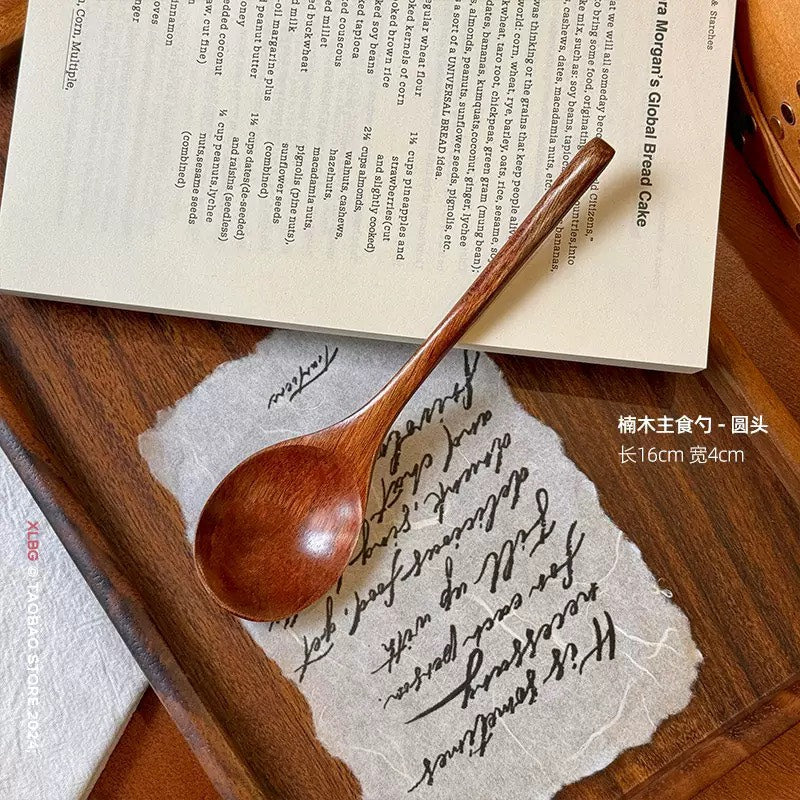 & Starches
ra Morgan's Global Bread Cake
at we will all someday beco
ld Citizens,"
to bring some food, originating
ountries,into
ke mix, such as: soy beans, tapioc
bananas,
s, cashews, dates, macadamia nuts, etc.
was thinking or the grains that keep people aliv
world: corn, wheat, rye, barley oats, rice, sesame, so
kwheat, taro root, chickpeas, green gram (mung bean);
dates, bananas, kumquats,coconut, ginger, lychee
s, almonds, peanuts, sunflower seeds, pignolis, etc.
s a sort of a UNIVERSAL BREAD idea.
egular wheat flour
oked kernels of corn
ooked brown rice
ked soy beans
ked tapioca
ced couscous
ed millet
ed buckwheat
d milk
-oil margarine plus
d peanut butter
oney
edded coconut
aw, cut fine)
innamon
loves
inger
, Corn, Multiple,
1½ cups pineapples and
strawberries(cut
and slightly cooked)
2½ cups almonds,
walnuts, cashews,
hazelnuts,
macadamia nuts,
pignolis (pine nuts),
sunflower seeds
(combined)
1½ cups dates(de-seeded)
and raisins (seedless)
¼ cup peanuts,lychee
nuts,sesame seeds
(combined)
楠木主食勺 - 圆头
长16cm 宽4cm
It is sometimes
necessary
for each person
Fill up with
delicious food, get
drunk, sing
and chat
XLBG @ TAOBAO STORE 2024